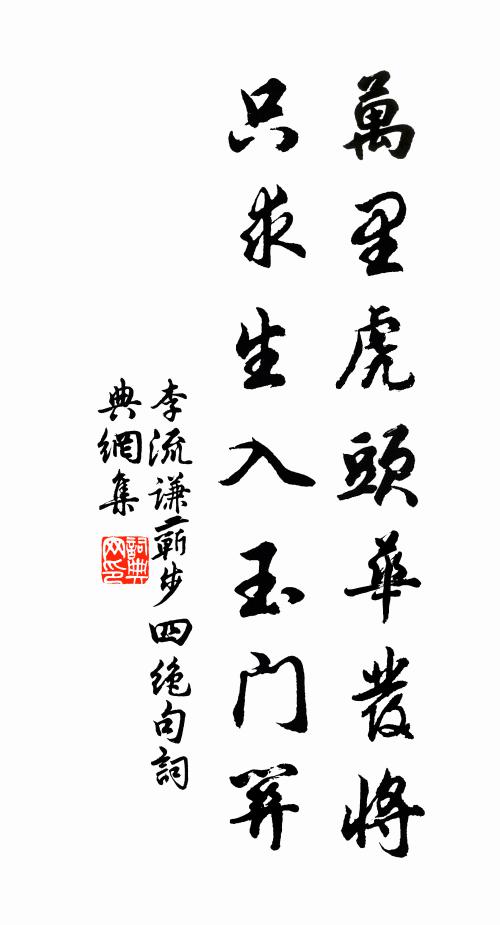 萬里虎頭華發將
只求生入玉門關
李流謙蘄步四絕句詞
典網集
詞典
网印